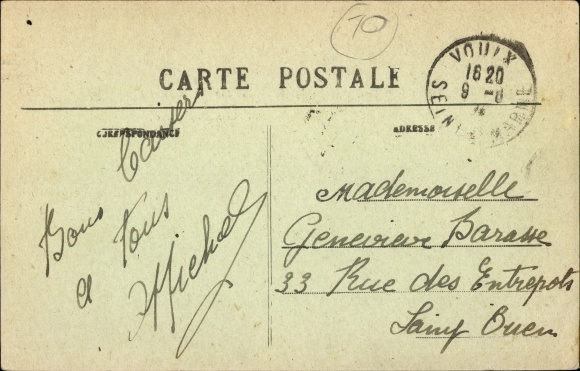 10
CARTE POSTALE
VOULX
16 20
9 -8
SEINE ET MARNE
CORRESPONDANCE
ADRESSE
Bons Baisers
a Tous
Michel
Mademoiselle
Genevieve Barasse
33 Rue des Entrepots
Saint Ouen